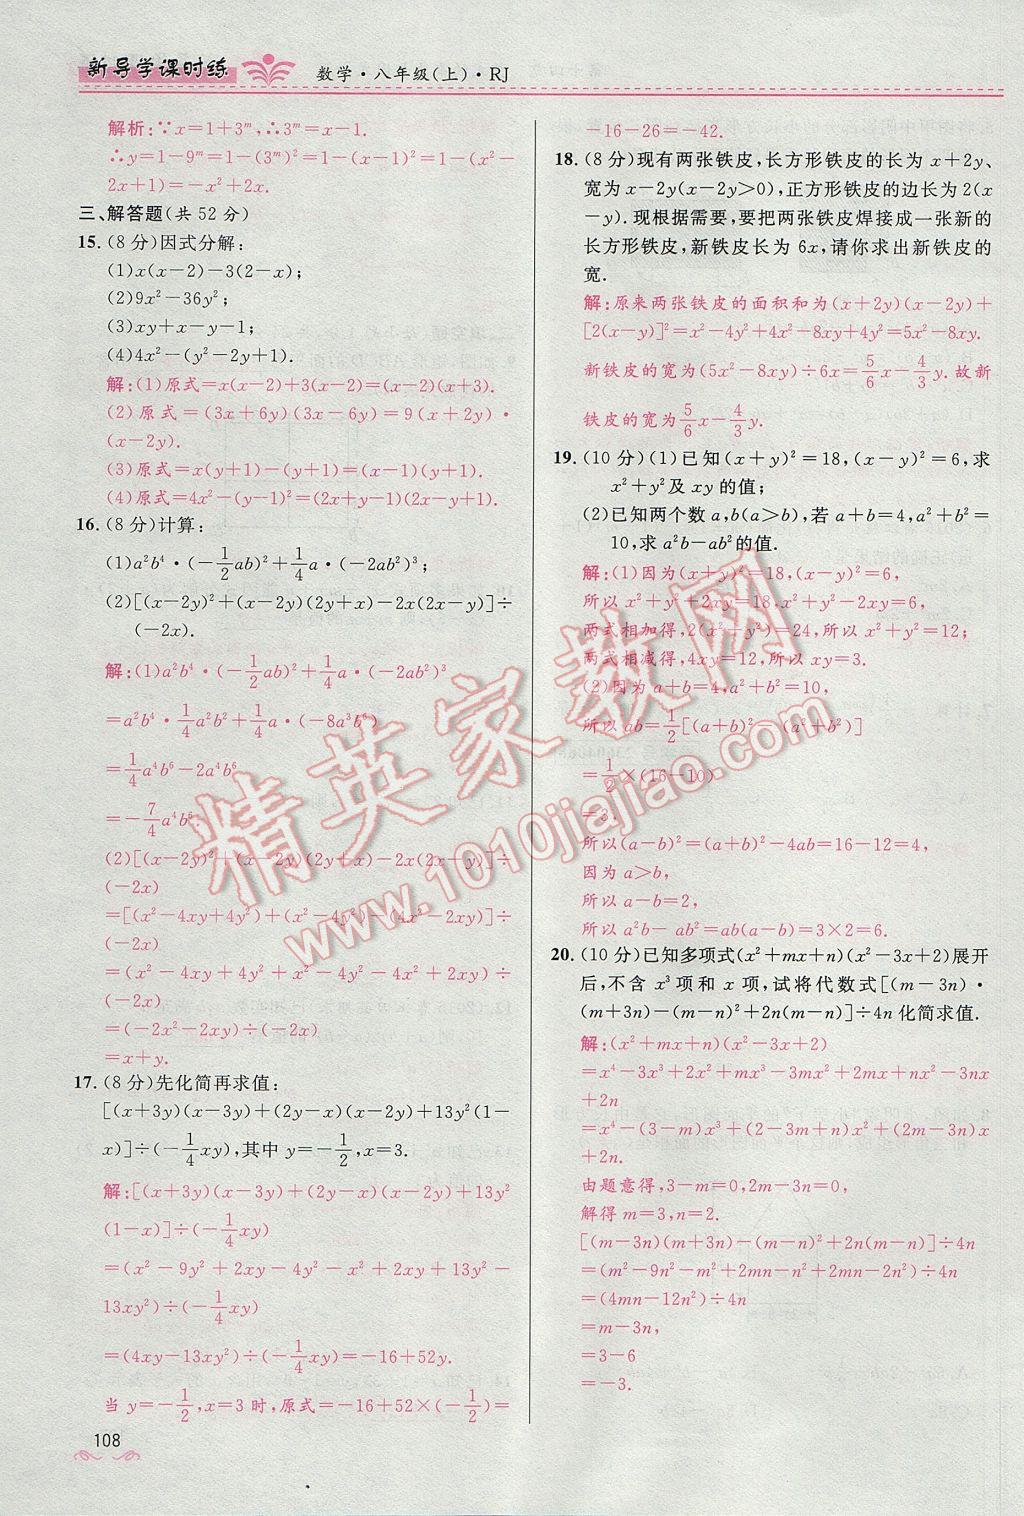 新导学课时练
数学·八年级(上)·RJ
解析:∵x=1+3ᵐ,∴3ᵐ=x-1.
∴y=1-9ᵐ=1-(3ᵐ)²=1-(x-1)²=1-(x²-
2x+1)=-x²+2x.
三、解答题(共52分)
15.(8分)因式分解:
(1)x(x-2)-3(2-x);
(2)9x²-36y²;
(3)xy+x-y-1;
(4)4x²-(y²-2y+1).
解:(1)原式=x(x-2)+3(x-2)=(x-2)(x+3).
(2)原式=(3x+6y)(3x-6y)=9(x+2y)·
(x-2y).
(3)原式=x(y+1)-(y+1)=(x-1)(y+1).
(4)原式=4x²-(y-1)²=(2x+y-1)(2x-y+1).
16.(8分)计算:
(1)a²b⁴·(-1/2ab)²+1/4a·(-2ab²)³;
(2)[(x-2y)²+(x-2y)(2y+x)-2x(2x-y)]÷
(-2x).
解:(1)a²b⁴·(-1/2ab)²+1/4a·(-2ab²)³
=a²b⁴·1/4a²b²+1/4a·(-8a³b⁶)
=1/4a⁴b⁶-2a⁴b⁶
=-7/4a⁴b⁶.
(2)[(x-2y)²+(x-2y)(2y+x)-2x(2x-y)]÷
(-2x)
=[(x²-4xy+4y²)+(x²-4y²)-(4x²-2xy)]÷
(-2x)
=(x²-4xy+4y²+x²-4y²-4x²+2xy)÷
(-2x)
=(-2x²-2xy)÷(-2x)
=x+y.
17.(8分)先化简再求值:
[(x+3y)(x-3y)+(2y-x)(x-2y)+13y²(1-
x)]÷(-1/4xy),其中y=-1/2,x=3.
解:[(x+3y)(x-3y)+(2y-x)(x-2y)+13y²
(1-x)]÷(-1/4xy)
=(x²-9y²+2xy-4y²-x²+2xy+13y²-
13xy²)÷(-1/4xy)
=(4xy-13xy²)÷(-1/4xy)=-16+52y.
当y=-1/2,x=3时,原式=-16+52×(-1/2)=
108
-16-26=-42.
18.(8分)现有两张铁皮,长方形铁皮的长为x+2y、
宽为x-2y(x-2y>0),正方形铁皮的边长为2(x
-y).现根据需要,要把两张铁皮焊接成一张新的
长方形铁皮,新铁皮长为6x,请你求出新铁皮的
宽.
解:原来两张铁皮的面积和为(x+2y)(x-2y)+
[2(x-y)]²=x²-4y²+4x²-8xy+4y²=5x²-8xy.
新铁皮的宽为(5x²-8xy)÷6x=5/6x-4/3y.故新
铁皮的宽为5/6x-4/3y.
19.(10分)(1)已知(x+y)²=18,(x-y)²=6,求
x²+y²及xy的值;
(2)已知两个数a,b(a>b),若a+b=4,a²+b²=
10,求a²b-ab²的值.
解:(1)因为(x+y)²=18,(x-y)²=6,
所以x²+y²+2xy=18,x²+y²-2xy=6,
两式相加得,2(x²+y²)=24,所以x²+y²=12;
两式相减得,4xy=12,所以xy=3.
(2)因为a+b=4,a²+b²=10,
所以ab=1/2[(a+b)²-(a²+b²)]
=1/2×(16-10)
=3.
所以(a-b)²=(a+b)²-4ab=16-12=4,
因为a>b,
所以a-b=2,
所以a²b-ab²=ab(a-b)=3×2=6.
20.(10分)已知多项式(x²+mx+n)(x²-3x+2)展开
后,不含x³项和x项,试将代数式[(m-3n)·
(m+3n)-(m-n)²+2n(m-n)]÷4n化简求值.
解:(x²+mx+n)(x²-3x+2)
=x⁴-3x³+2x²+mx³-3mx²+2mx+nx²-3nx
+2n
=x⁴-(3-m)x³+(2-3m+n)x²+(2m-3n)x+
2n.
由题意得,3-m=0,2m-3n=0,
解得m=3,n=2.
[(m-3n)(m+3n)-(m-n)²+2n(m-n)]÷4n
=(m²-9n²-m²+2mn-n²+2mn-2n²)÷4n
=(4mn-12n²)÷4n
=m-3n,
=3-6
=-3.
精英家教网
www.1010jiajiao.com